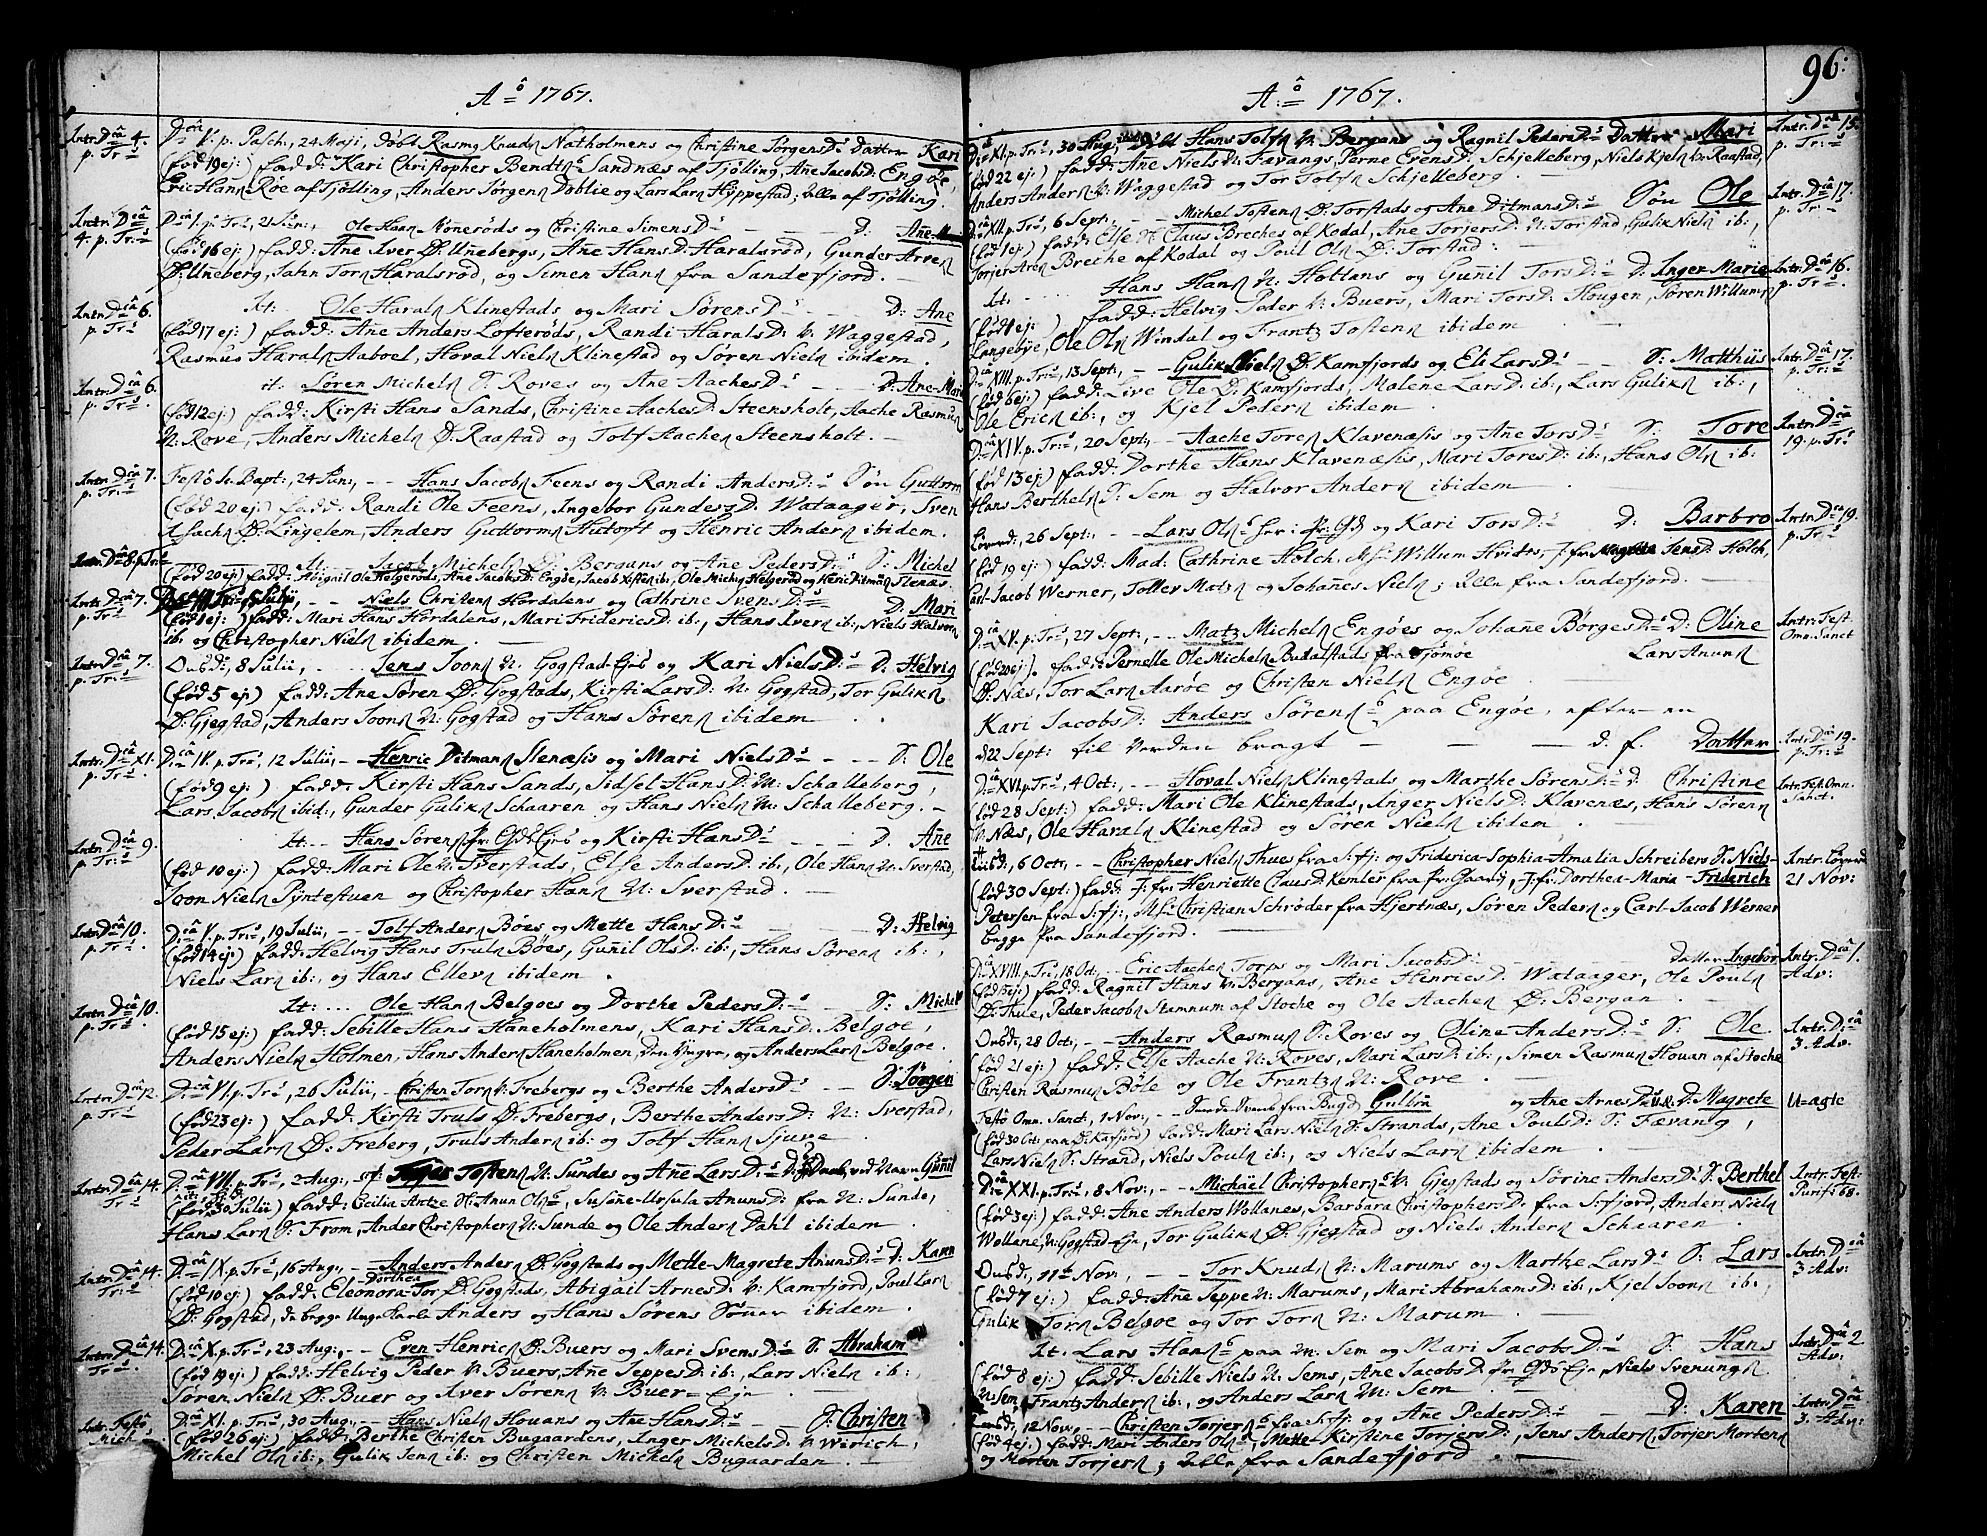 Aô 1767.
Intr. Dcâ 4. p. Tr:
Dcâ V. p. Pasch, 24 Maji, döbt Rasm Knuds Natholmens og Christine JörgensD: Datter Kari
(föd 19 ej:) fadd: Kari Christopher Bendts Sandnæs af Tjölling, Ane JacobsD: Engöe,
Eric Hans Röe af Tjölling, Anders Jörgen Dablie og Lars Lars Hÿppestad; Alle af Tjölling.
Intr. Dcâ 4. p. Tr:
Dcâ 1. p. Tr:, 21 Jun:, Ole Haan Noneröds og Christine SimensD: D: Ane-Mari
(föd 16 ej:) fadd: Ane Iver Ø: Unebergs, Ane HansD: Haralsröd, Gunder Arven
Ø: Uneberg, Jahn Torn Haralsröd, og Simen Hans fra Sandefjord.
Intr. Dcâ 6. p. Tr:
It: Ole Haraln Klinestads og Mari SörensD: D: Ane
(föd 17 ej:) fadd: Ane Anders Lofteröds, Randi HaralsD: V: Waggestad,
Rasmus Haraln Aaboel, Hoval Nieln Klinestad og Sören Nieln ibidem.
Intr. Dcâ 6. p. Tr:
it: Sören Micheln S: Roves og Ane AachesD: D: Ane-Marie
(föd 12 ej:) fadd: Kirsti Hans Sands, Christine AachesD: Steensholt, Aache Rasmun
N: Rove, Anders Micheln Ø: Raastad og Tolf Aachen Steensholt.
Intr. Dcâ 7. p. Tr:
Festö Jo. Bapt:, 24 Jun:, Hans Jacobn Feens og Randi AndersD: Sön Guttorm
(föd 20 ej:) fadd: Randi Ole Feens, Ingebor GundersD: Wataager, Sven
Isachn Ø: Lingelem, Anders Guttormn Hutoft og Henric Andern ibidem.
Intr. Dcâ 8. p. Tr:
It: Jacob Micheln Ø: Bergans og Ane PedersD: S: Michel
(föd 20 ej:) fadd: Abigail Ole Helgeröds, Ane JacobsD: Engöe, Jacob ib:, Ole Helgeröd og Henric Ditman Stenæs.
Intr. Dcâ 7. p. Tr:
Julii, Niels Christen Hordalens og Cathrine SvensD: D: Mari
(föd 1 ej:) fadd: Mari Hans Hordalens, Mari FridericsD: ib:, Hans Ivern ib:, Niels Halvorn
ib: og Christopher Nieln ibidem.
Intr. Dcâ 7. p. Tr:
Onsd:, 8 Julii, Jens Joon N: Gogstad-Ejes og Kari NielsD: D: Helvig
(föd 5 ej:) fadd: Ane Sören Ø: Gogstads, Kirsti LarsD: N: Gogstad, Tor Gulikn
Ø: Gjegstad, Anders Joon N: Gogstad og Hans Sören ibidem.
Intr. Dcâ XI. p. Tr:
Dcâ IV. p. Tr:, 12 Julii, Henric Ditman Stenæsis og Mari NielsD: S: Ole
(föd 9 ej:) fadd: Kirsti Hans Sands, Sidsel HansD: N: Schalleberg,
Lars Jacobn ibid:, Gunder Gulikn Schaaren og Hans Nieln N: Schalleberg.
Intr. Dcâ 9. p. Tr:
It: Hans Sören Pr: Gds Ejes og Kirsti HansD: D. Ane
(föd 10 ej:) fadd: Mari Ole N: Sverstads, Else AndersD: ib:, Ole Han N: Sverstad,
Joon Nieln Pyntestuen og Christopher Han N: Sverstad.
Intr. Dcâ 10. p. Tr:
Dcâ V. p. Tr:, 19 Julii, Tolf Andern Böes og Mette HansD: D: Helvig
(föd 14 ej:) fadd: Helvig Hans Truln Böes, Gunil OlsD: ib:, Hans Sören ib:,
Niels Larn ib:, og Hans Ellevn ibidem.
Intr. Dcâ 10. p. Tr:
It: Ole Han Belgoes og Dorthe PedersD: S: Michel
(föd 15 ej:) fadd: Sebille Hans Haneholmens, Kari HansD: Belgoe,
Anders Nieln Holmen, Hans Andern Haneholmen, den Yngre, og Anders Larn Belgoe.
Intr. Dcâ 12. p. Tr:
Dcâ VI. p. Tr:, 26 Julii, Christen Torn V: Frebergs og Berthe AndersD: S: Jörgen
(föd 23 ej:) fadd: Kirsti Truls Ø: Frebergs, Berthe AndersD: N: Sverstad,
Peder Larn Ø: Freberg, Truls Andern ib: og Tolf Han Sjuve.
Intr. Dcâ 14. p. Tr:
Dcâ VII. p. Tr:, 2 Aug:, Torger Tosten N: Sundes og Ane LarsD: D: ved Navn Gunil
(föd 30 Julii) fadd: Cecilia Antze Anun Ols, Susane-Ursula AnunsD: fra N: Sunde,
Hans Larn S: From, Ander Christophern N: Sunde og Ole Andern Dahl ibidem.
Intr. Dcâ 14. p. Tr:
Dcâ IX. p. Tr:, 16 Aug:, Anders Andern Ø: Gogstads og Mette-Magrete AnunsD: D: Karen
(föd 10 ej:) fadd: Eleonora-Dorthea Tor Ø: Gogstads, Abigail ArnesD: V: Kamfjord, Poul Larn
Ø: Gogstad, de begge unge Karle Anders og Hans Sörens Sönner ibidem.
Intr. Dcâ 14. p. Tr:
Dcâ X. p. Tr:, 23 Aug:, Even Henricn Ø: Buers og Mari SvensD: S: Abraham
(föd 19 ej:) fadd: Helvig Peder V: Buers, Ane JeppesD: ib:, Lars Nieln ib:,
Sören Nieln Ø: Buer og Iver Sören V: Buer-Eje.
Intr. Festô Mich:
Dcâ XI. p. Tr:, 30 Aug:, Hans Nieln Hovans og Ane HansD: S: Christen
(föd 26 ej:) fadd: Berthe Christen Bugaardens, Inger MichelsD: V: Wirich,
Michel Oln ib:, Gulik Jenn ib: og Christen Micheln Bugaarden.
96:
Aô 1767.
Dcâ XI. p. Tr:, 30 Aug:, Hans Tolfn V: Bergans og Ragnil PedersD: Datter Mari
Intr. Dcâ 15. p. Tr:
(föd 22 ej:) fadd: Ane Niels N: Fævangs, Perne EvensD: Schjelleberg, Niels Kjeln V: Raastad,
Anders Andern V: Waggestad og Tor Tolfn Schjelleberg.
Dcâ XII. p. Tr:, 6 Sept:, Michel Tosten Ø: Torstads og Ane DitmansD: Sön Ole
Intr. Dcâ 17. p. Tr:
(föd 1 ej:) fadd: Else N: Claus Breches af Kodal, Ane TorjersD: N: Torstad, Gulik Nieln ib:,
Torjer Aren Breche af Kodal og Poul Oln Ø: Torstad.
It: Hans Han N: Hottans og Gunil TorsD: D: Inger Marie
Intr. Dcâ 16. p. Tr:
(föd 1 ej:) fadd: Helvig Peder V: Buers, Mari TorsD: Hougen, Sören Willumn
Langebÿe, Ole Oln Windal og Frantz Tosten ibidem.
Dcâ XIII. p. Tr:, 13 Sept:, Gulik Nieln Ø: Kamfjords og Eli LarsD: S: Matthiis
Intr. Dcâ 17. p. Tr:
(föd 6 ej:) fadd: Live Ole Ø: Kamfjords, Malene LarsD: ib:, Lars Gulikn ib:,
Ole Ericn ib:, og Kjel Pedern ibidem.
Dcâ XIV. p. Tr:, 20 Sept:, Aache Torn Klavenæsis og Ane TorsD: S: Tore
Intr. Dcâ 19. p. Tr:
(föd 13 ej:) fadd: Dorthe Hans Klavenæsis, Mari ToresD: ib:, Hans Oln ib:
Hans Bertheln S: Sem og Halvor Andern ibidem.
Löverd:, 26 Sept:, Lars Ols og Kari TorsD: D: Barbro
Intr. Dcâ 19. p. Tr:
(föd 19 ej:) fadd: Mad: Cathrine Holch, Willum Hvidts, J:fr: Magrete JensD: Holch,
Carl-Jacob Werner, Toller Matzn og Johanes Nieln; Alle fra Sandefjord.
Dcâ XV. p. Tr:, 27 Sept:, Matz Micheln Engöes og Johane BörgesD: D: Oline
Intr: Fest: Omn. Sanct
(föd 20 ej:) fadd: Pernelle Ole Micheln Budalstads fra Tjömöe Lars Anunn
Ø: Næs, Tor Larn Aaröe og Christen Nieln Engöe.
Kari JacobsD: Anders Sörens paa Engöe, efter en
d 22 Sept: til Verden bragt d. f. Datter
Intr. Dcâ 19. p. Tr:
Dcâ XVI. p. Tr:, 4 Oct:, Hoval Nieln Klinestads og Marthe SörensD: D: Christine
Intr. Fest. Omn. Sanct:
(föd 28 Sept:) fadd: Mari Ole Klinestads, Inger NielsD: Klavenæs, Hans Sören
V: Næs, Ole Haraln Klinestad og Sören Nieln ibidem.
Tiisd:, 6 Oct:, Christopher Nieln Thues fra S:fj: og Friderica-Sophia-Amalia Schreibers S: Niels-
Intr: Löverd 21 Nov:
(föd 30 Sept:) fadd: J:fr: Henriette ClausD: Kemler fra Pr: Gaard, J:fr: Dorthea-Maria Friderich
Petersen fra S:fj:, Christian Schröder fra Hjertnæs, Sören Pedern og Carl-Jacob Werner
begge fra Sandefjord.
Dcâ XVIII. p. Tr:, 18 Oct:, Eric Aachen Torps og Mari JacobsD: Datter Ingebor
Intr: Dcâ 1. Adv:
(föd 15 ej:) fadd: Ragnil Hans V: Bergans, Ane HenricsD: Wataager, Ole Pouln
Ø: Thule, Peder Jacobn Stamnum af Stoche og Ole Aachen Ø: Bergan.
Onsd:, 28 Oct:, Anders Rasmun S: Roves og Oline AndersD: S: Ole
Intr: Dcâ 3. Adv.
(föd 21 ej:) fadd: Else Aache N: Roves, Mari LarsD: ib:, Simen Rasmun Hovan af Stoche
Christen Rasmun Böle og Ole Frantzn N: Rove.
Festô Omn. Sanct, 1 Nov:, fra Bugd Gullön og Ane ArnesD: D: Magrete
U-ægte
(föd 30 Oct: paa Ø: Kafjord) fadd: Mari Lars Nieln S: Strands, Ane PoulsD: S: Fævang,
Lars Nieln S: Strand, Niels Pouln ib:, og Niels Larn ibidem.
Dcâ XXI. p. Tr:, 8 Nov:, Michaël Christophern V: Gjegstads og Sörine AndersD: S: Berthel
Intr: Fest: Purif: 68.
(föd 3 ej:) fadd: Ane Anders Wollanes, Barbara ChristophersD: fra S:fjord, Anders Nieln
Wollane, N: Gogstad-Eje, Tor Gulikn Ø: Gjegstad og Niels Andern Schaaren.
Onsd:, 11te Nov:, Tor Knudn N: Marums og Marthe LarsD: S: Lars
Intr: Dcâ 3. Adv:
(föd 7 ej:) fadd: Ane Jeppe N: Marums, Mari AbrahamsD: ib:, Kjel Joon ib:,
Gulik Torn Belgoe og Tor Torn N: Marum.
It: Lars Hans paa N: Sem og Mari JacobsD: S: Hans
Intr: Dcâ 2 Adv:
(föd 8 ej:) fadd: Sebille Niels N: Sems, Ane JacobsD: Pr: Gds Eje, Niels Svenungn
N: Sem, Frantz Andern ib:, og Anders Larn N: Sem.
12 Nov:, Christen Torjers fra S:fj: og Ane PedersD: D: Karen
Intr: Dcâ 3. Adv:
(föd 4 ej:) fadd: Mari Anders Ols, Mette-Kirstine TorjersD:, Jens Andern, Torjer Morten
og Morten Torjern; Alle fra Sandefjord.